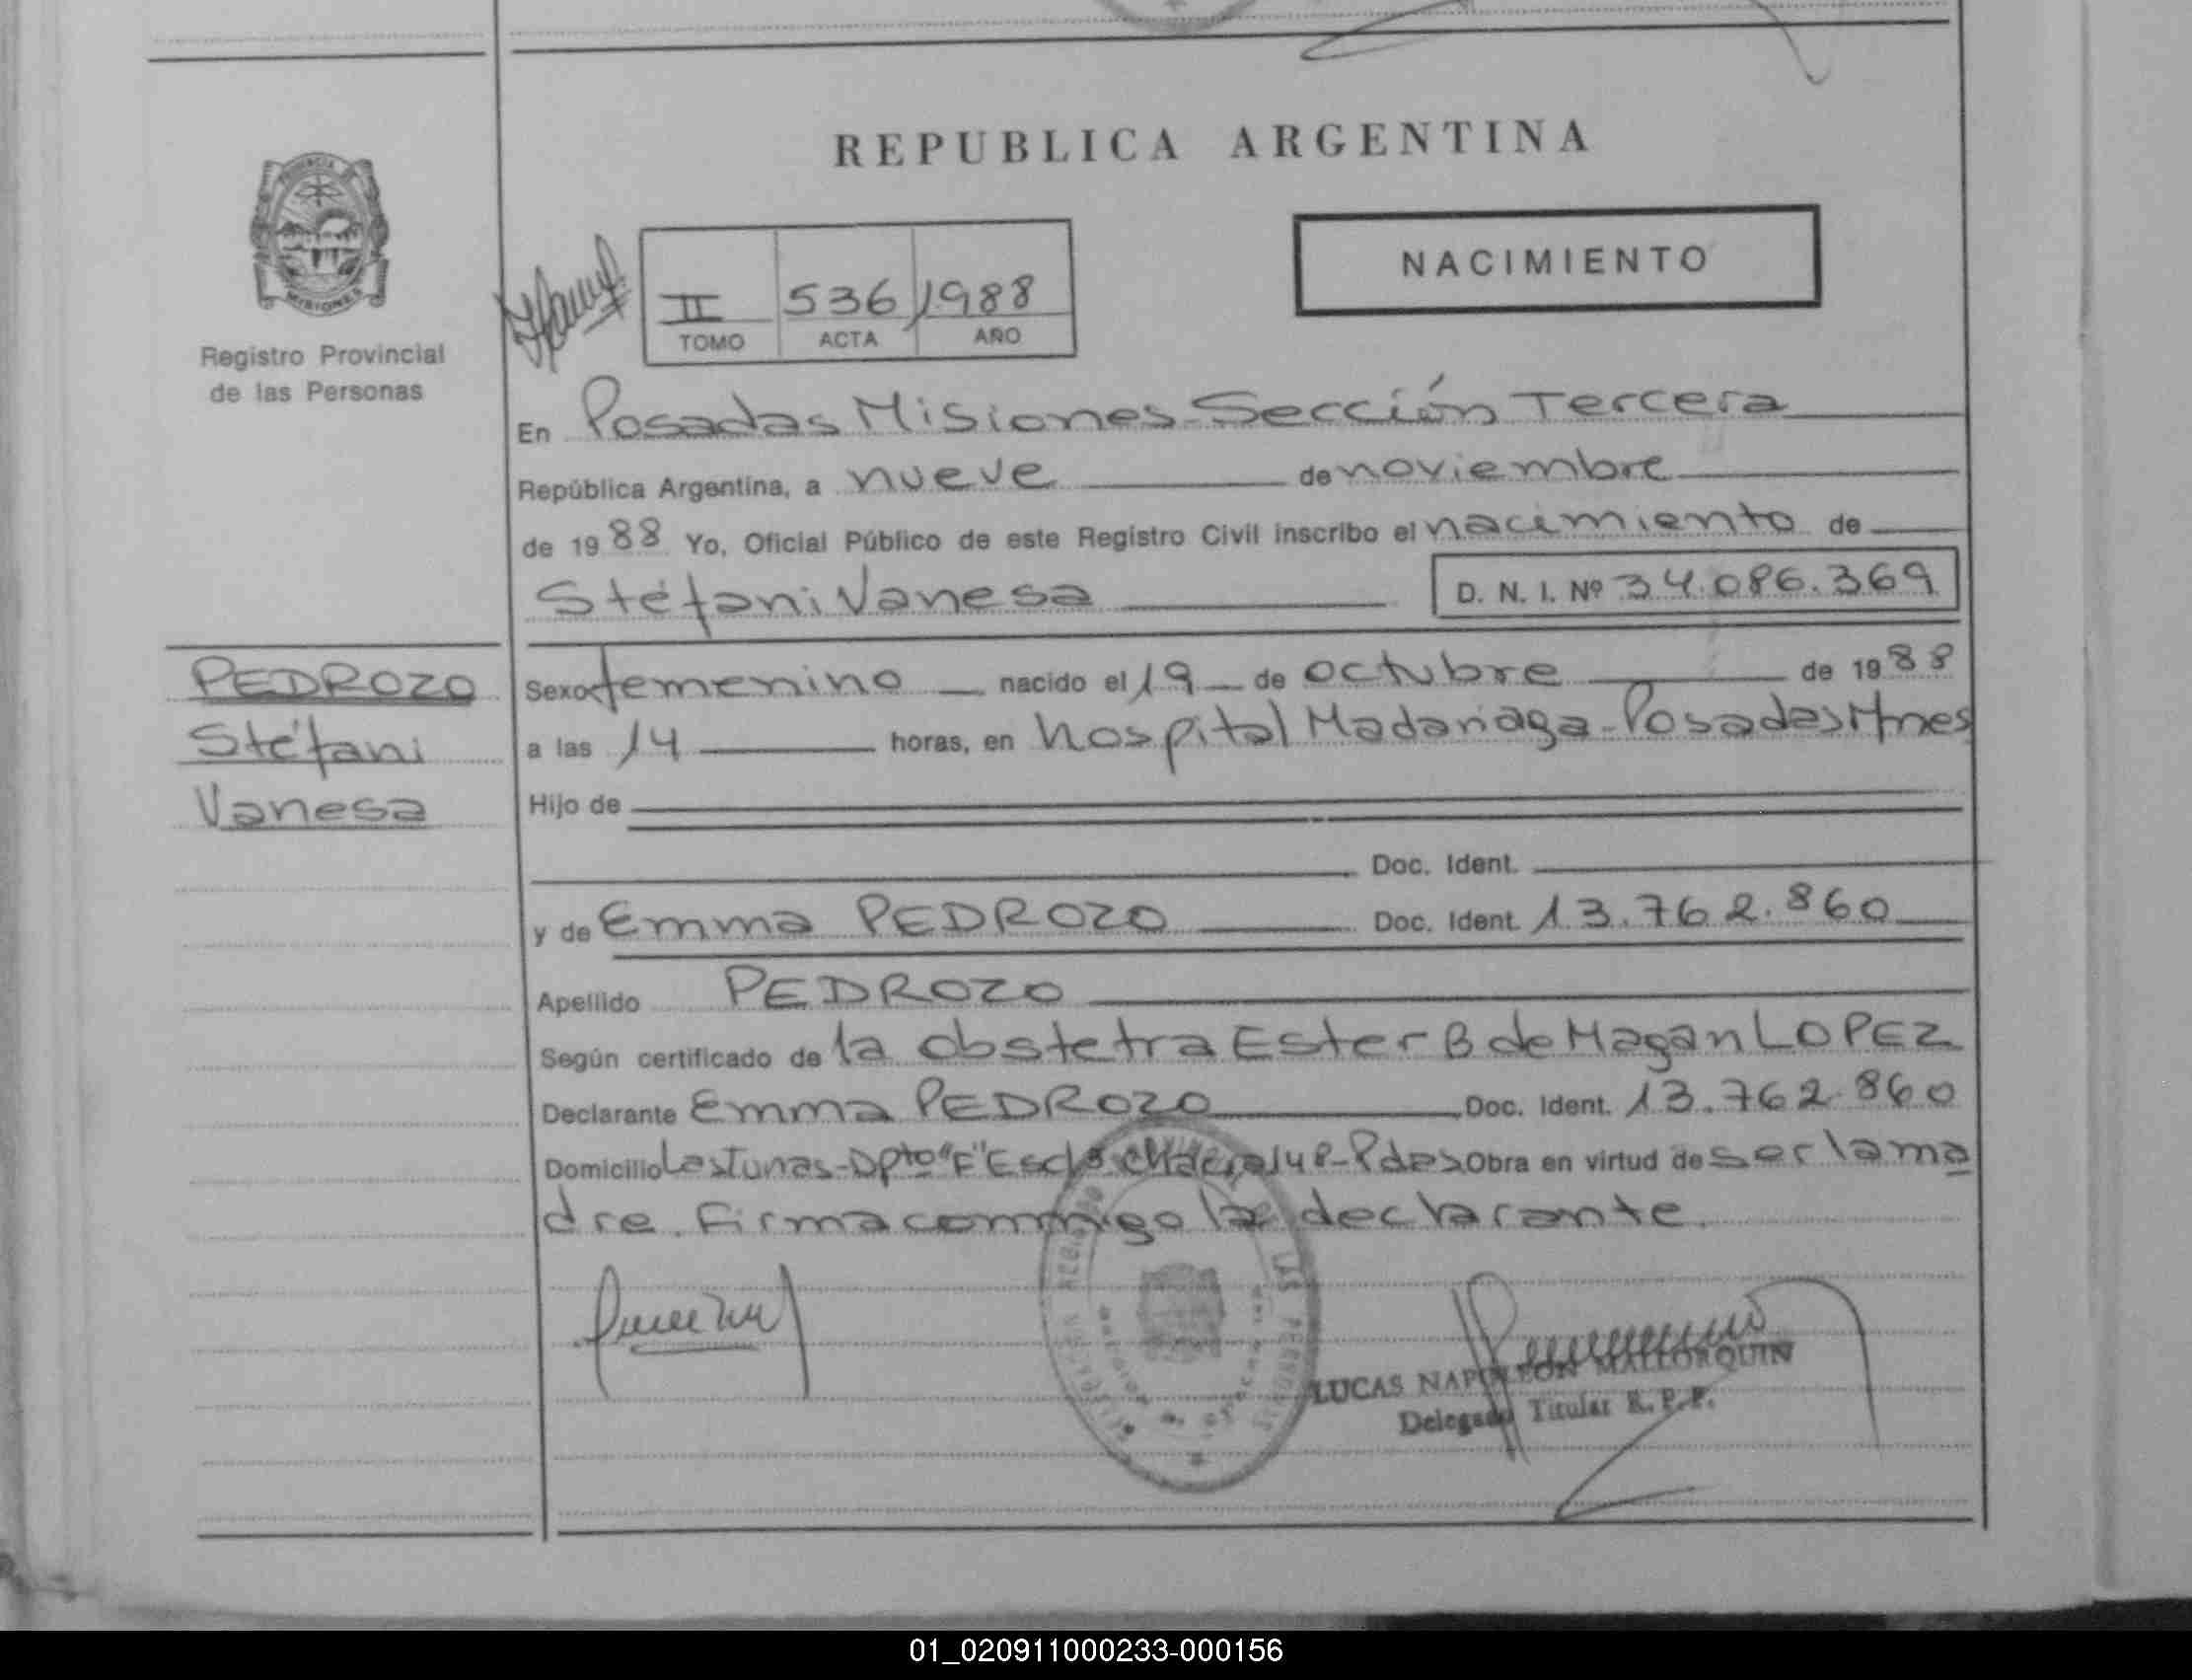 REPUBLICA ARGENTINA
NACIMIENTO
II 536 1988
TOMO ACTA AÑO
PROVINCIA DE
MISIONES
Registro Provincial
de las Personas
En Posadas Misiones-Sección Tercera
República Argentina, a nueve de noviembre
de 1988 Yo, Oficial Público de este Registro Civil inscribo el nacimiento de
Stéfani Vanesa D. N. I. Nº 34.086.369
PEDROZO
Stéfani
Vanesa
Sexo femenino nacido el 19 de octubre de 1988
a las 14 horas, en hospital Madariaga-Posadas Mnes
Hijo de
Doc. Ident.
y de Emma PEDROZO Doc. Ident. 13.762.860
Apellido PEDROZO
Según certificado de la obstetra Ester B de Magan LOPEZ
Declarante Emma PEDROZO Doc. Ident. 13.762.860
Domicilio Las Tunas-Dpto "F" Esc 148-Pdas Obra en virtud de ser la ma
dre. Firma conmigo la declarante.
LUCAS NAPOLEON MALLORQUIN
Delegado Titular R. P. P.
01_020911000233-000156